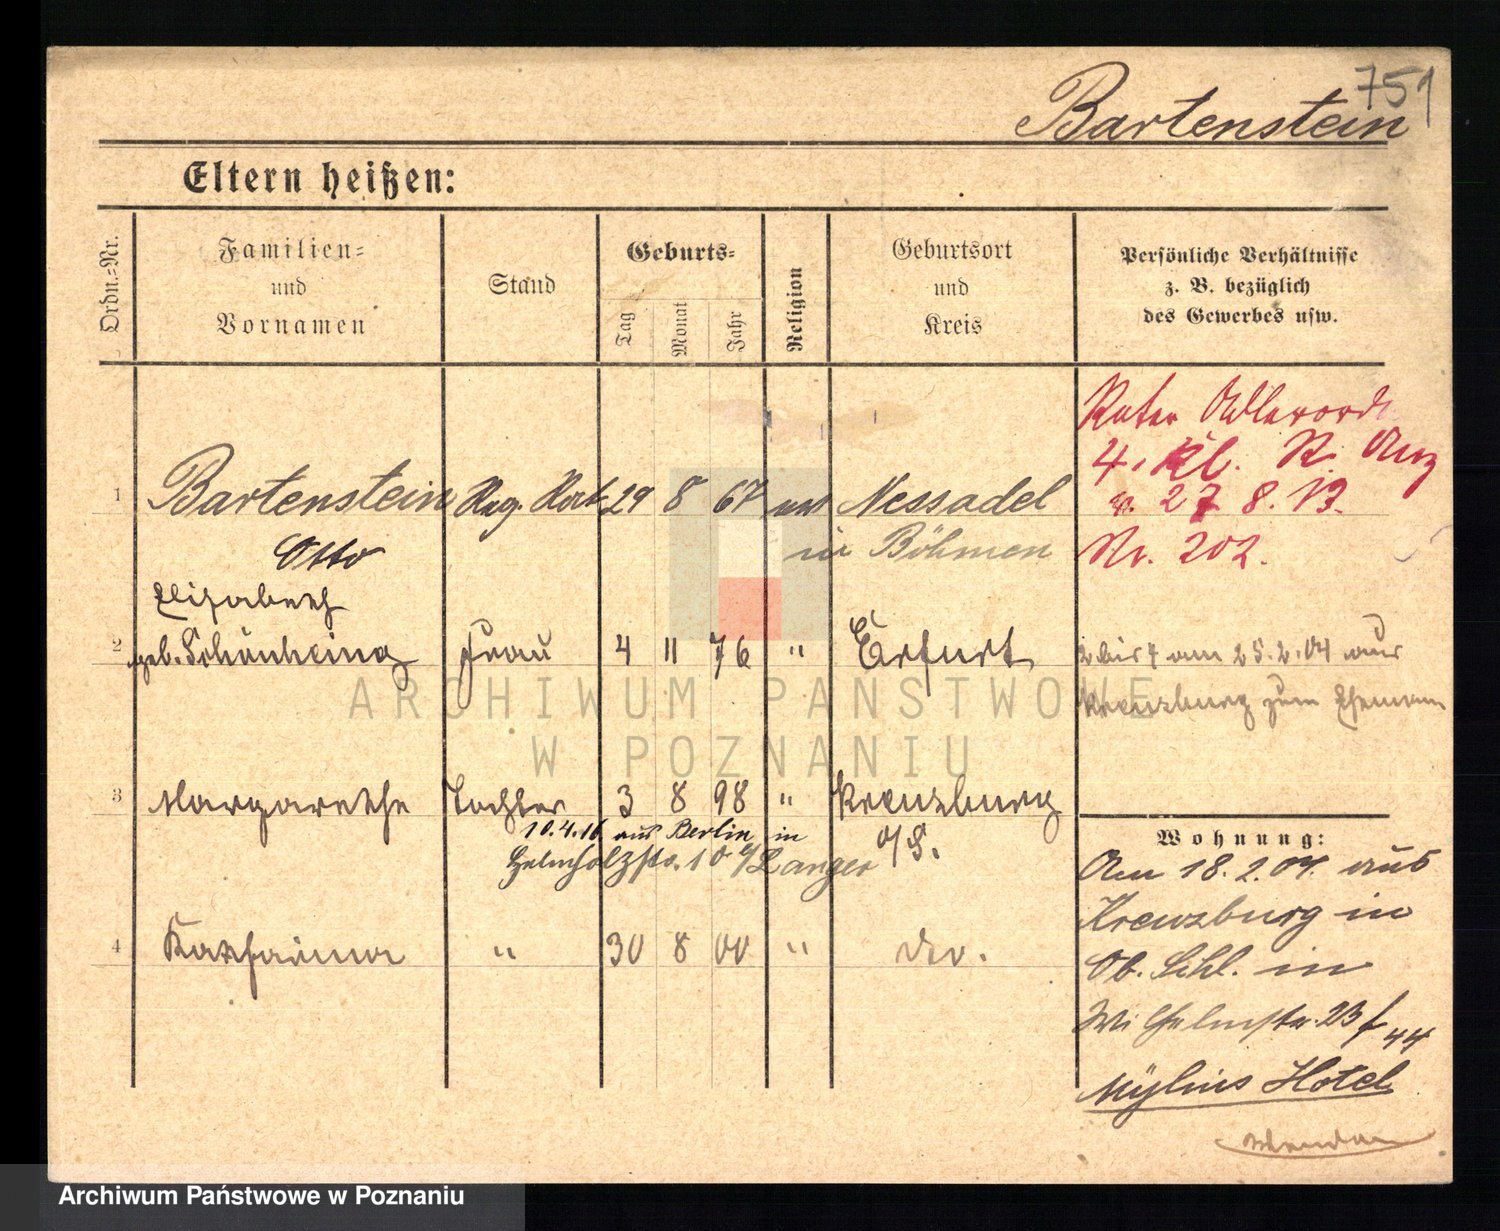 751
Bartenstein
Eltern heißen:
Ordn.=Nr.
Familien=
und
Vornamen
Stand
Geburts=
Tag
Monat
Jahr
Religion
Geburtsort
und
Kreis
Persönliche Verhältnisse
z. B. bezüglich
des Gewerbes usw.
Roter Adlerord
4. Kl. R. Anz
v. 27 8. 13.
Nr. 202.
1 Bartenstein Reg. Rat 29 8 67 Nessadel
Otto in Böhmen
Elisabeth
2 geb. Schönheinz Frau 4 11 76 " Erfurt
2 bis 4 am 25.2.04 aus
Kreuzburg zum Ehemann
3 Margarethe Tochter 3 8 98 " Kreuzburg
O/S.
10.4.16 aus Berlin in
Helmholzstr. 10 b/Langer
4 Katharina " 30 8 00 " do.
Wohnung:
Am 18.2.04. aus
Kreuzburg in
Ob. Schl. in
Wilhelmstr. 23 f 44
Mylius Hotel
Wenden
ARCHIWUM PAŃSTWOWE
W POZNANIU
Archiwum Państwowe w Poznaniu